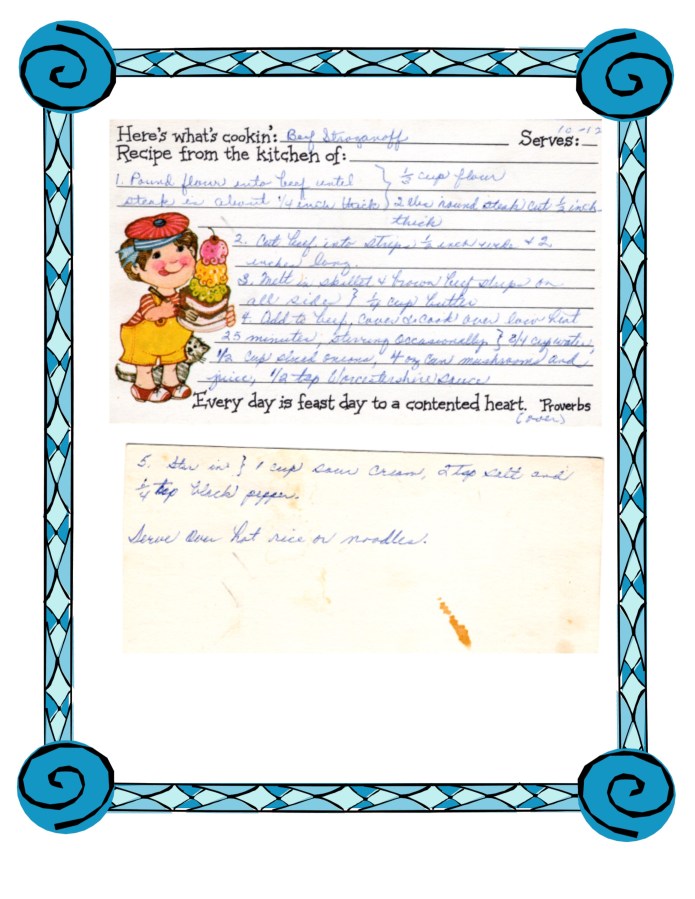 Here's what's cookin': Beef Stroganoff Serves: 10-12
Recipe from the kitchen of:
1. Pound flour into beef until } 1/3 cup flour
steak is about 1/4 inch thick } 2 lbs round steak cut 1/2 inch
thick
2. Cut beef into strips 1/2 inch wide & 2
inches long.
3. Melt in skillet & brown beef strips on
all side } 1/4 cup butter
4. Add to beef, cover & cook over low heat
25 minutes, stirring occasionally } 3/4 cup water,
1/2 cup sliced onions, 4 oz can mushrooms and
juice, 1/2 tsp Worcestershire Sauce
Every day is feast day to a contented heart. Proverbs
(over)
5. Stir in } 1 cup sour cream, 2 tsp salt and
1/4 tsp black pepper.
Serve over hot rice or noodles.